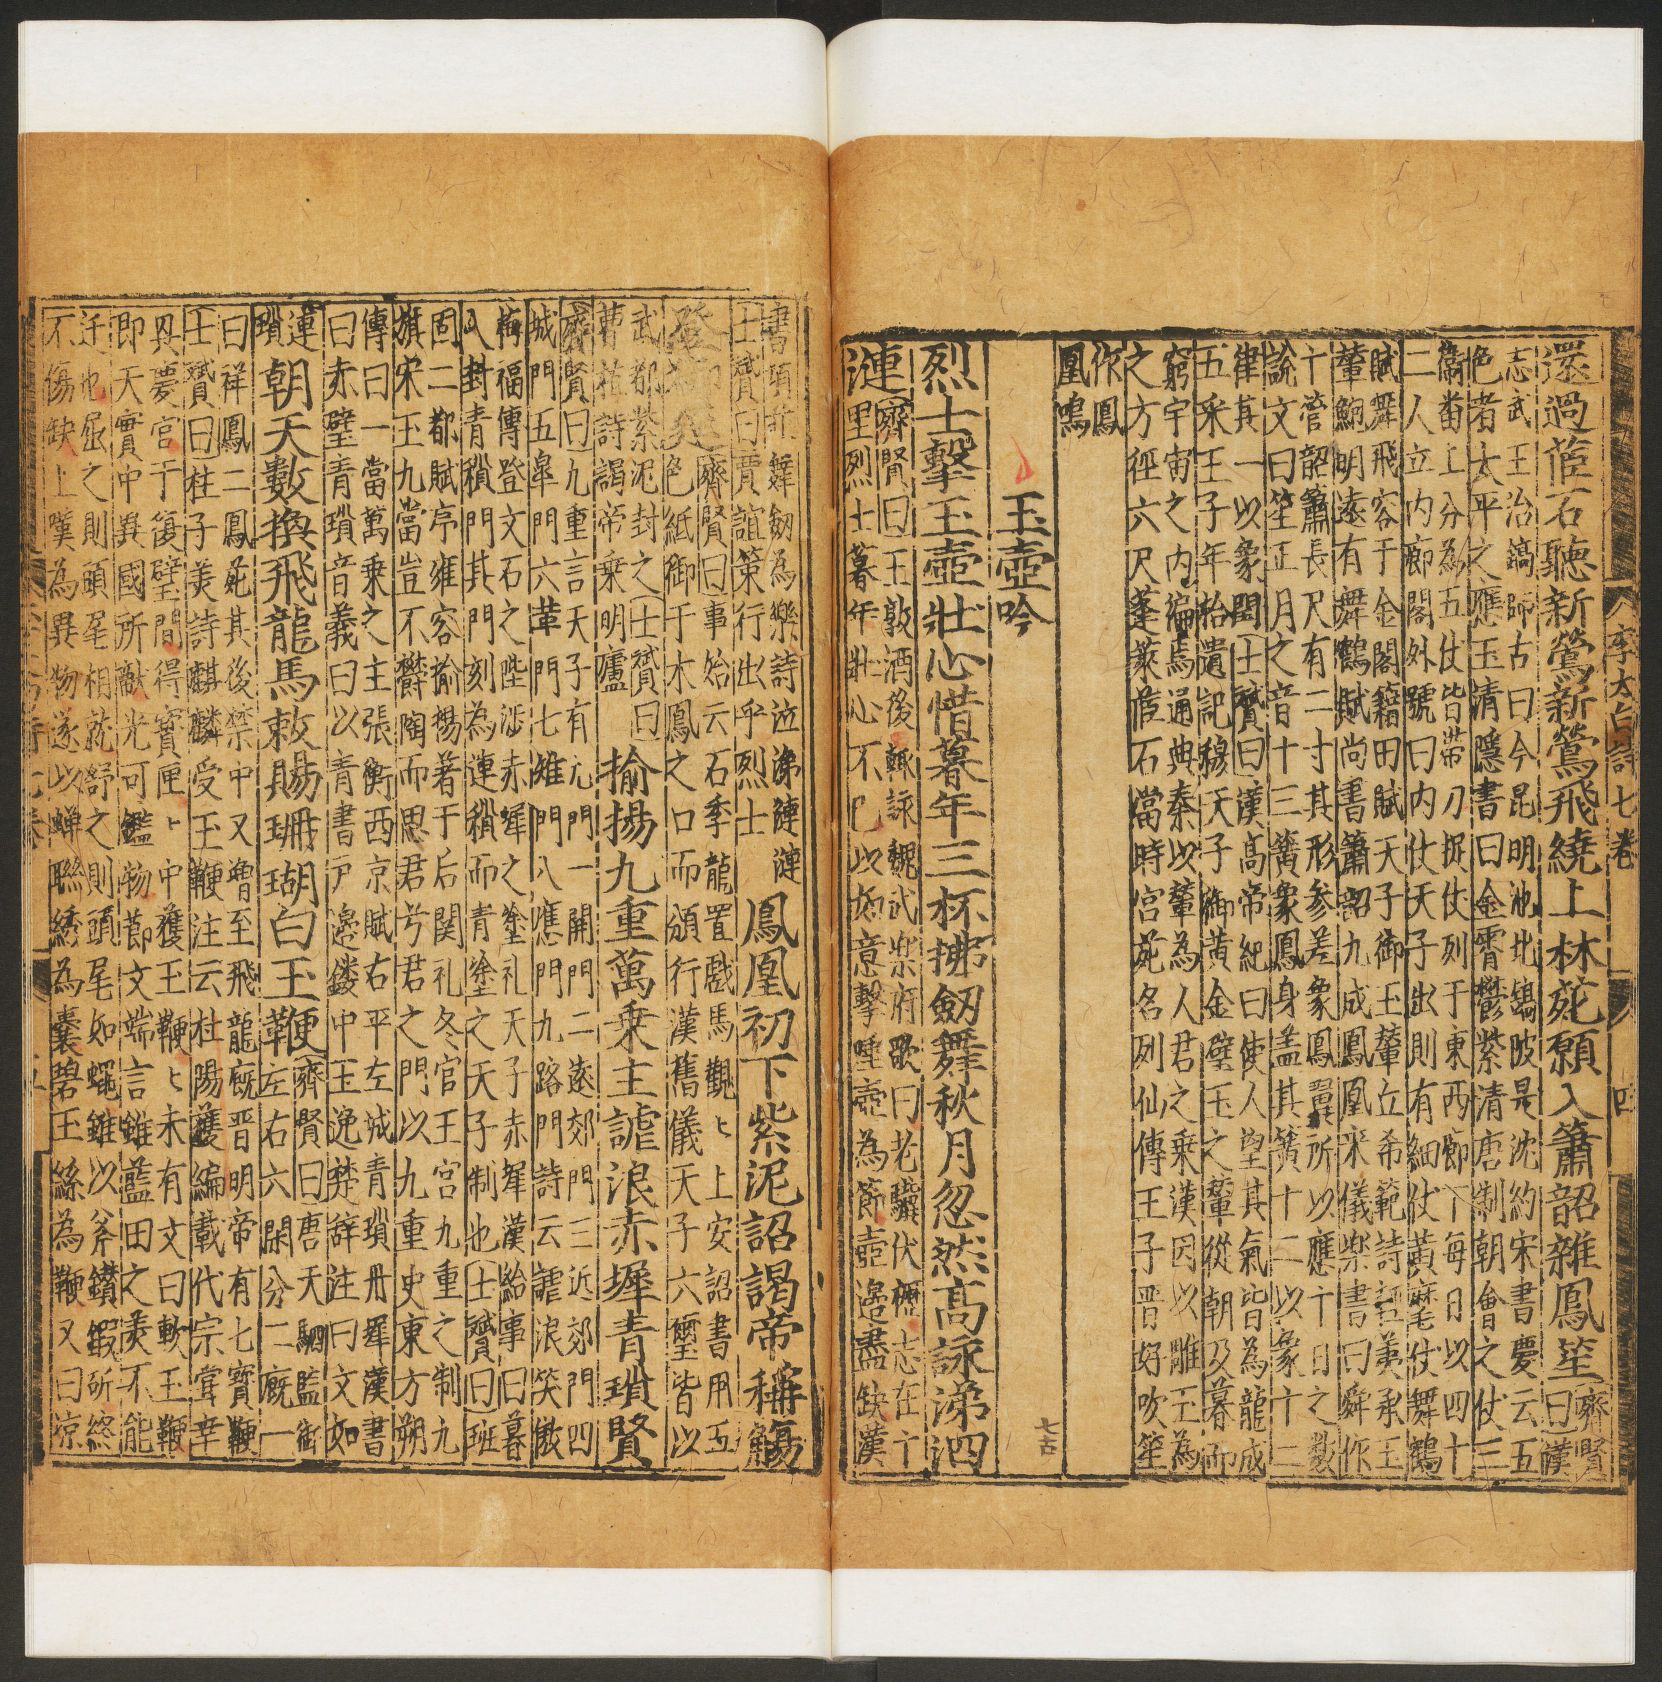 李太白詩七卷 四
還過茝石聽新鶯新鶯飛繞上林苑願入簫韶雜鳳笙齊賢
曰漢
志武王治鎬師古曰今昆明池北鎬陂是沈約宋書慶云五
色者太平之應玉清隱書曰金霄鬱紫清唐制朝會之仗三
衞番上分為五仗皆帶刀捉仗列于東西廊下每日以四十
二人立内廊閣外號曰内仗天子出則有細仗黄麾仗舞鶴
賦舞飛容于金閣籍田賦天子御玉輦丘希範詩荑承玉
輦鮑明遠有舞鶴賦尚書簫韶九成鳳凰來儀樂書曰舜作
十管韶簫長尺有二寸其形參差象鳳翼所以應十日之數
說文曰笙正月之音十三簧象鳳身盖其簧十二以象十二
律其一以象閏士贇曰漢高帝紀曰使人望其氣皆為龍成
五采王子年拾遺記穆天子御黄金璧玉之輦從朝及暮而
窮宇宙之内編焉通典秦以輦為人君之乘漢因以雕玉為
之方徑六尺蓬萊茝石當時宫苑名列仙傳王子晋好吹笙
作鳳
凰鳴
玉壺吟
烈士擊玉壺壯心惜暮年三杯拂劔舞秋月忽然高詠涕泗
漣齊賢曰王敦酒後輒詠魏武樂府歌曰老驥伏櫪志在千
里烈士暮年壯心不已以如意擊唾壺為節壺邊盡缺漢
書項莊舞劔為樂詩泣涕漣漣
士贇曰賈誼策行出乎烈士
鳳凰初下紫泥詔謁帝稱觴
登御筵齊賢曰事始云石季龍置戲馬觀〻上安詔書用五
色紙御于木鳳之口而頒行漢舊儀天子六璽皆以
武都紫泥封之士贇曰
曹植詩謁帝乗明廬
揄揚九重萬乗主謔浪赤墀青瑣賢
齊賢曰九重言天子有九門一關門二遠郊門三近郊門四
城門五臯門六門七雉門八應門九路門詩云謔浪笑傲
梅福傳登文石之陛涉赤墀之塗礼天子赤墀漢給事曰暮
入封青瑣門其門刻為連瑣而青塗之天子制也士贇曰班
固二都賦序雍容揄揚著于后関礼冬官王宫九重之制九
旗宋玉九當豈不欝陶而思君兮君之門以九重史東方朔
傳曰一當萬乗之主張衡西京賦右平左㦸青瑣丹墀漢書
曰赤璧青瑣音義曰以青書戸邊鏤中玉逸楚辭注曰文如
連
瑣
朝天數換飛龍馬敕賜珊瑚白玉鞭齊賢曰唐天駟監衛
左右六閑分二厩一
曰祥鳳二鳳苑其後禁中又增至飛龍厩晋明帝有七寳鞭
士贇曰柱子美詩麒麟受玉鞭注云杜陽雜編載代宗甞幸
興慶宫于復壁間得寳匣〻中獲玉鞭〻末有文曰軟玉鞭
即天寳中異國所獻光可鑑物節文端言雖藍田之羙不能
过也屈之則頭尾相就舒之則頭尾如繩雖以斧鑕鍛斫終
不傷缺上嘆為異物遂以蝉聯綉為囊碧玉絲為鞭又曰凉